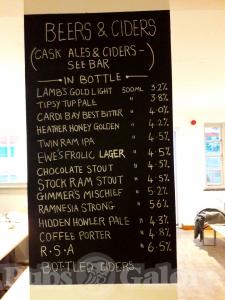 BEERS & CIDERS
(CASK ALES & CIDERS -
SEE BAR)
IN BOTTLE
LAMB'S GOLD LIGHT 500ML 3·2%
TIPSY TUP PALE " 3·8%
CARDI BAY BEST BITTER " 4·0%
HEATHER HONEY GOLDEN " 4·2%
TWIN RAM IPA " 4·5%
EWE'S FROLIC LAGER " 4·5%
CHOCOLATE STOUT " 4·5%
STOCK RAM STOUT " 4·5%
GIMMER'S MISCHIEF " 5·2%
RAMNESIA STRONG " 5·6%
HIDDEN HOWLER PALE " 4·3%
COFFEE PORTER " 4·8%
R·S·A " 6·5%
BOTTLED CIDERS
Pubs Galore